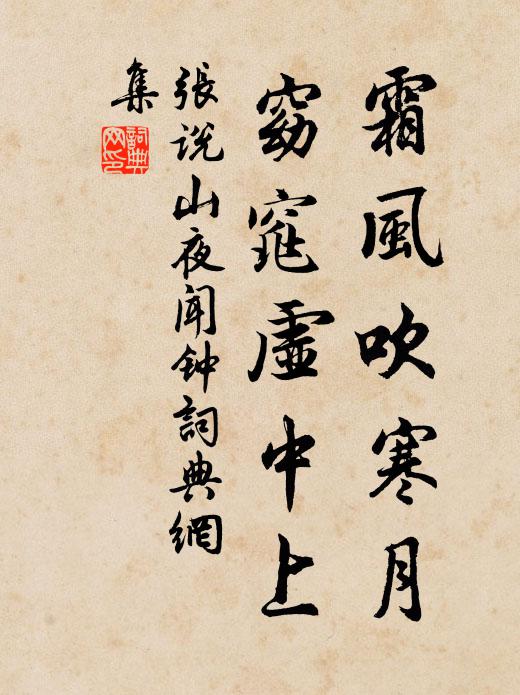 霜風吹寒月
窈窕虛中上
張說山夜聞鈡詞典網
集
詞典网印